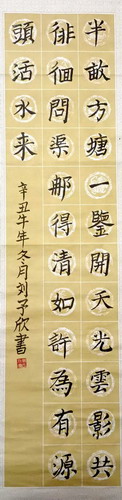 半畝方塘一鑒開天光雲影共
徘徊問渠那得清如許為有源
頭活水来
辛丑牛年冬月刘子欣書